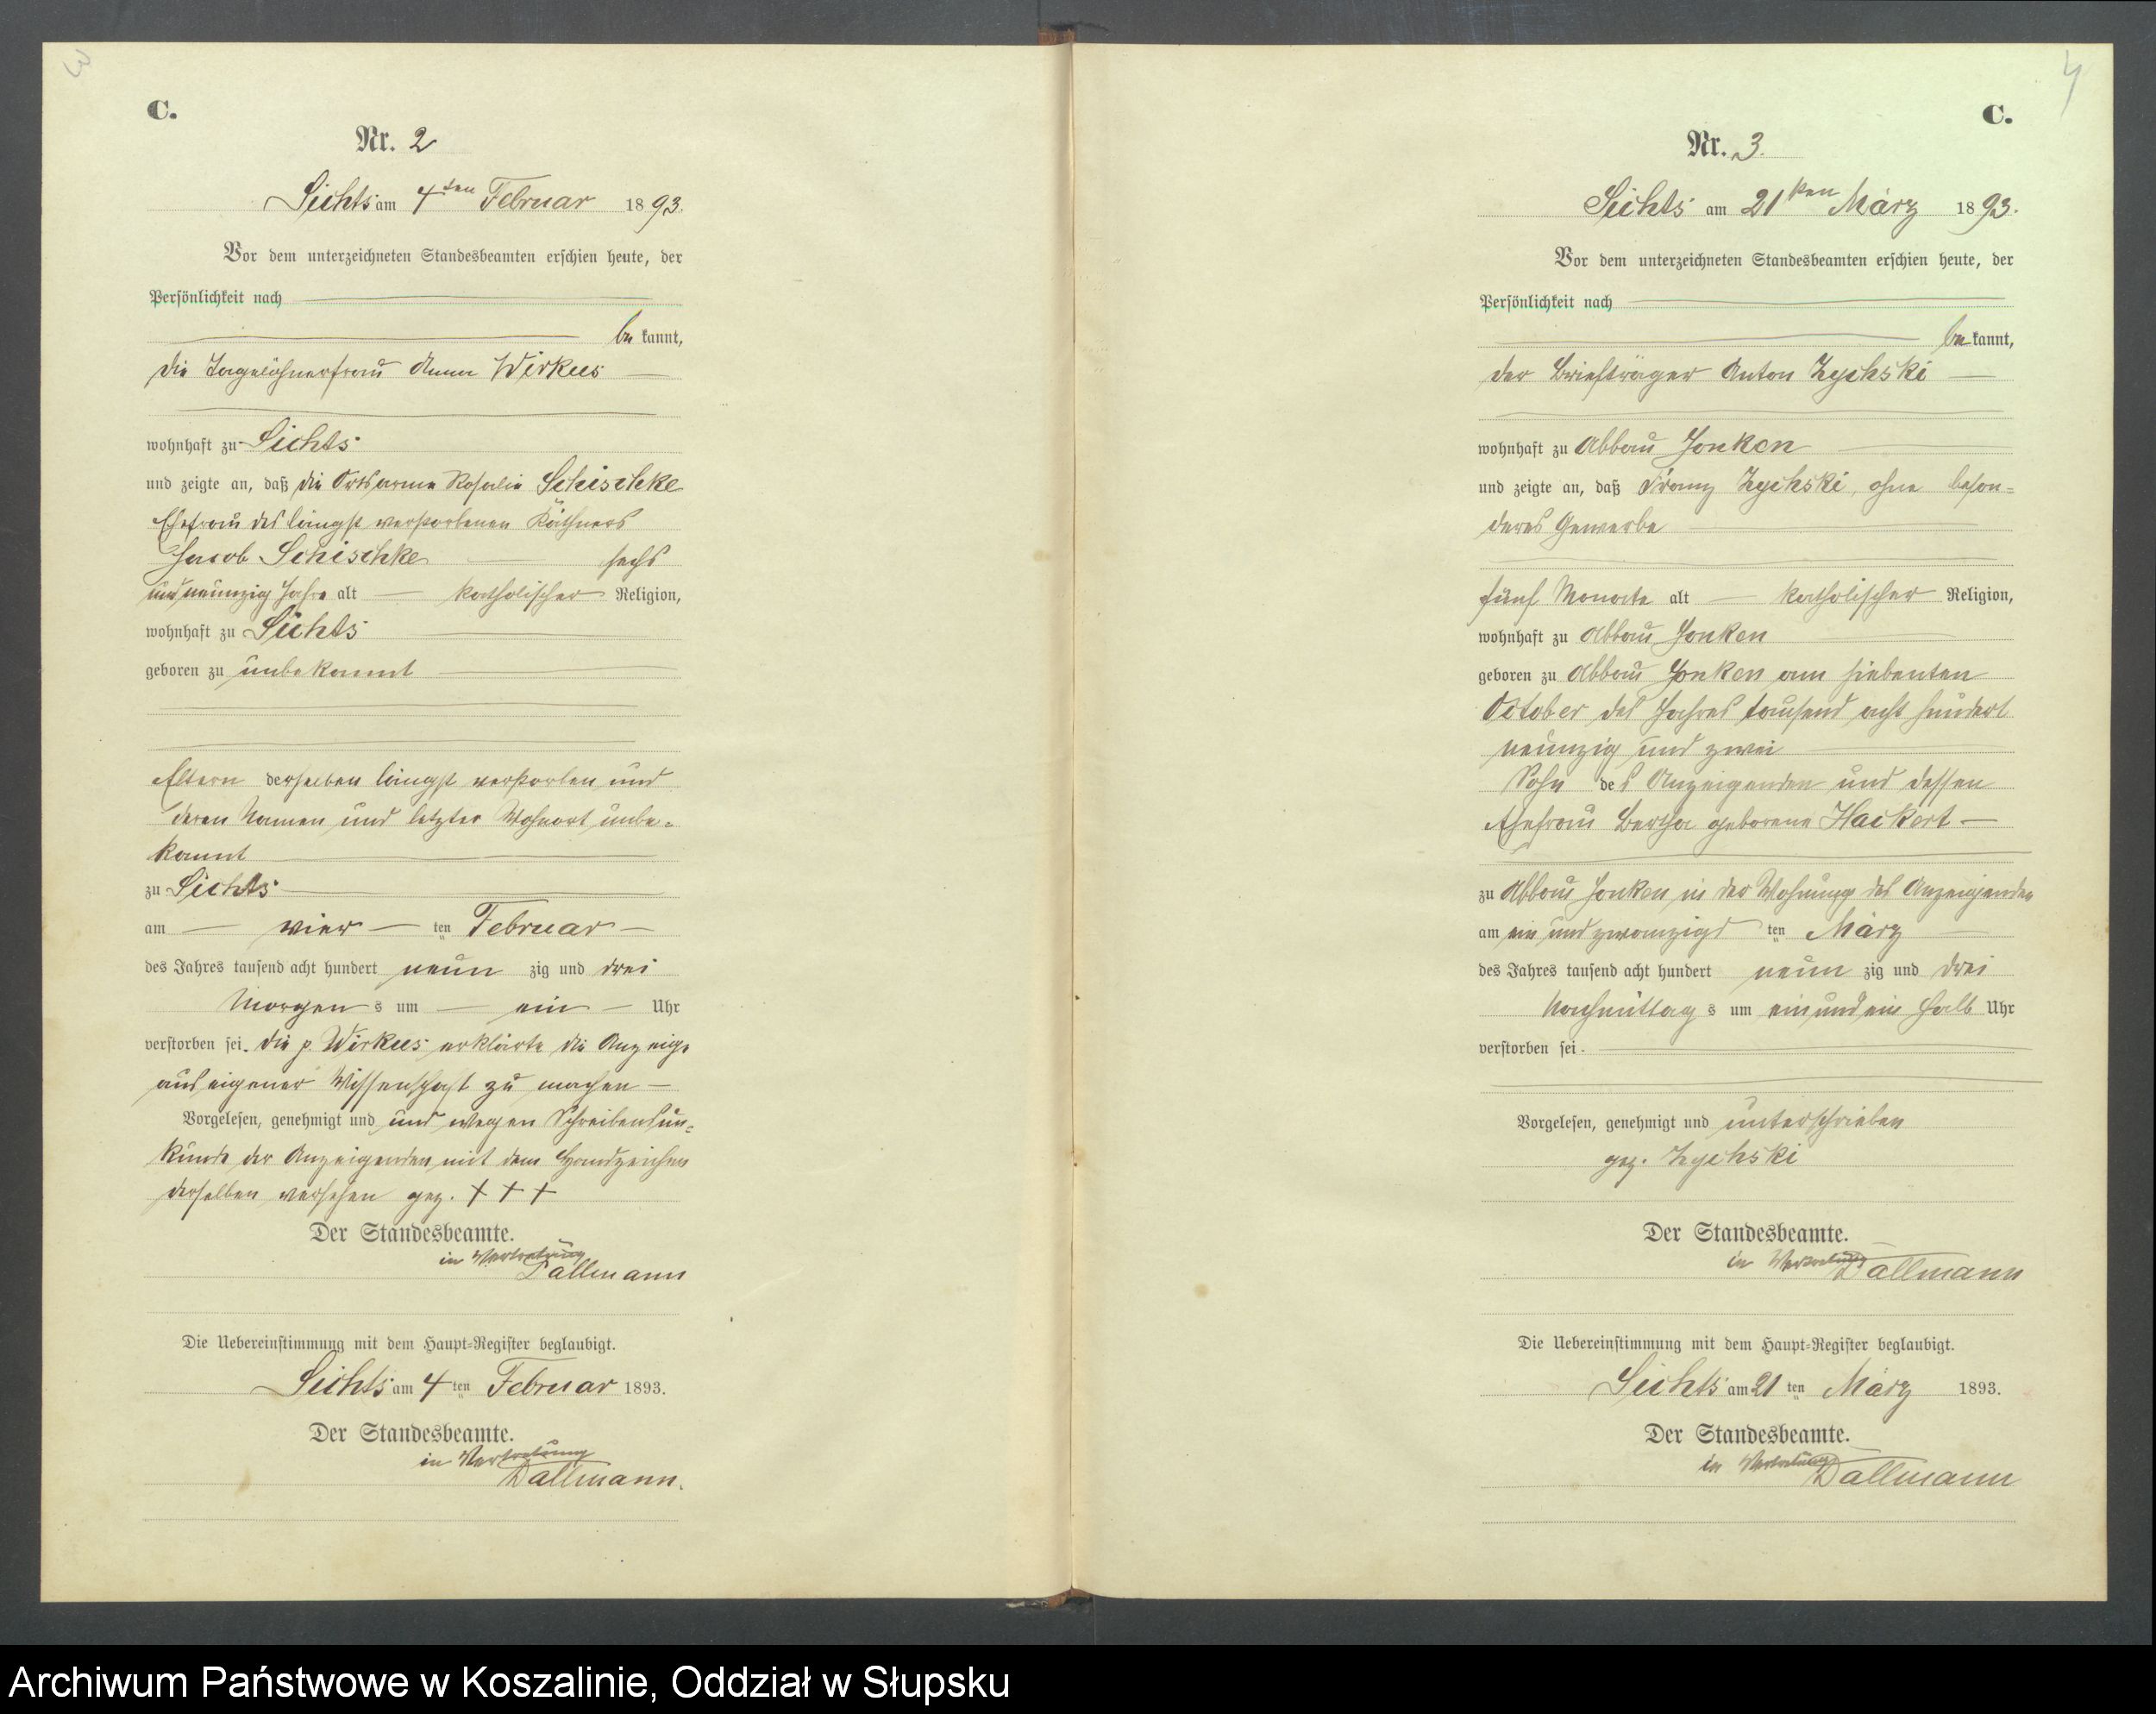 3
C.
Nr. 2
Sichts am 4ten Februar 1893.
Vor dem unterzeichneten Standesbeamten erschien heute, der
Persönlichkeit nach
be kannt,
die Tagelöhnerfrau Anna Wirkus
wohnhaft zu Sichts
und zeigte an, daß die Ortsarme Rosalie Schischke
Ehefrau des längst verstorbenen Käthners
Jacob Schischke sechs
und neunzig Jahre alt katholischer Religion,
wohnhaft zu Sichts
geboren zu unbekannt
Eltern derselben längst verstorben und
deren Namen und letzter Wohnort unbe-
kannt
zu Sichts
am vier ten Februar
des Jahres tausend acht hundert neun zig und drei
Morgen s um ein Uhr
verstorben sei. die p. Wirkus erklärte die Anzeige
aus eigener Wissenschaft zu machen
Vorgelesen, genehmigt und und wegen Schreibensun-
kunde der Anzeigenden mit dem Handzeichen
derselben versehen gez. + + +
Der Standesbeamte.
in Vertretung
Dallmann
Die Uebereinstimmung mit dem Haupt-Register beglaubigt.
Sichts am 4ten Februar 1893.
Der Standesbeamte.
in Vertretung
Dallmann.
4
C.
Nr. 3.
Sichts am 21ten März 1893.
Vor dem unterzeichneten Standesbeamten erschien heute, der
Persönlichkeit nach
be kannt,
der Briefträger Anton Zychski
wohnhaft zu Abbau Jonken
und zeigte an, daß Franz Zychski, ohne beson-
deres Gewerbe
fünf Monate alt katholischer Religion,
wohnhaft zu Abbau Jonken
geboren zu Abbau Jonken am siebenten
October des Jahres tausend acht hundert
neunzig und zwei
Sohn des Anzeigenden und dessen
Ehefrau Bertha geborene Hackert
zu Abbau Jonken in der Wohnung des Anzeigenden
am ein und zwanzigs ten März
des Jahres tausend acht hundert neun zig und drei
Nachmittag s um ein und ein halb Uhr
verstorben sei.
Vorgelesen, genehmigt und unterschrieben
gez. Zychski
Der Standesbeamte.
in Vertretung
Dallmann
Die Uebereinstimmung mit dem Haupt-Register beglaubigt.
Sichts am 21 ten März 1893.
Der Standesbeamte.
in Vertretung
Dallmann
Archiwum Państwowe w Koszalinie, Oddział w Słupsku